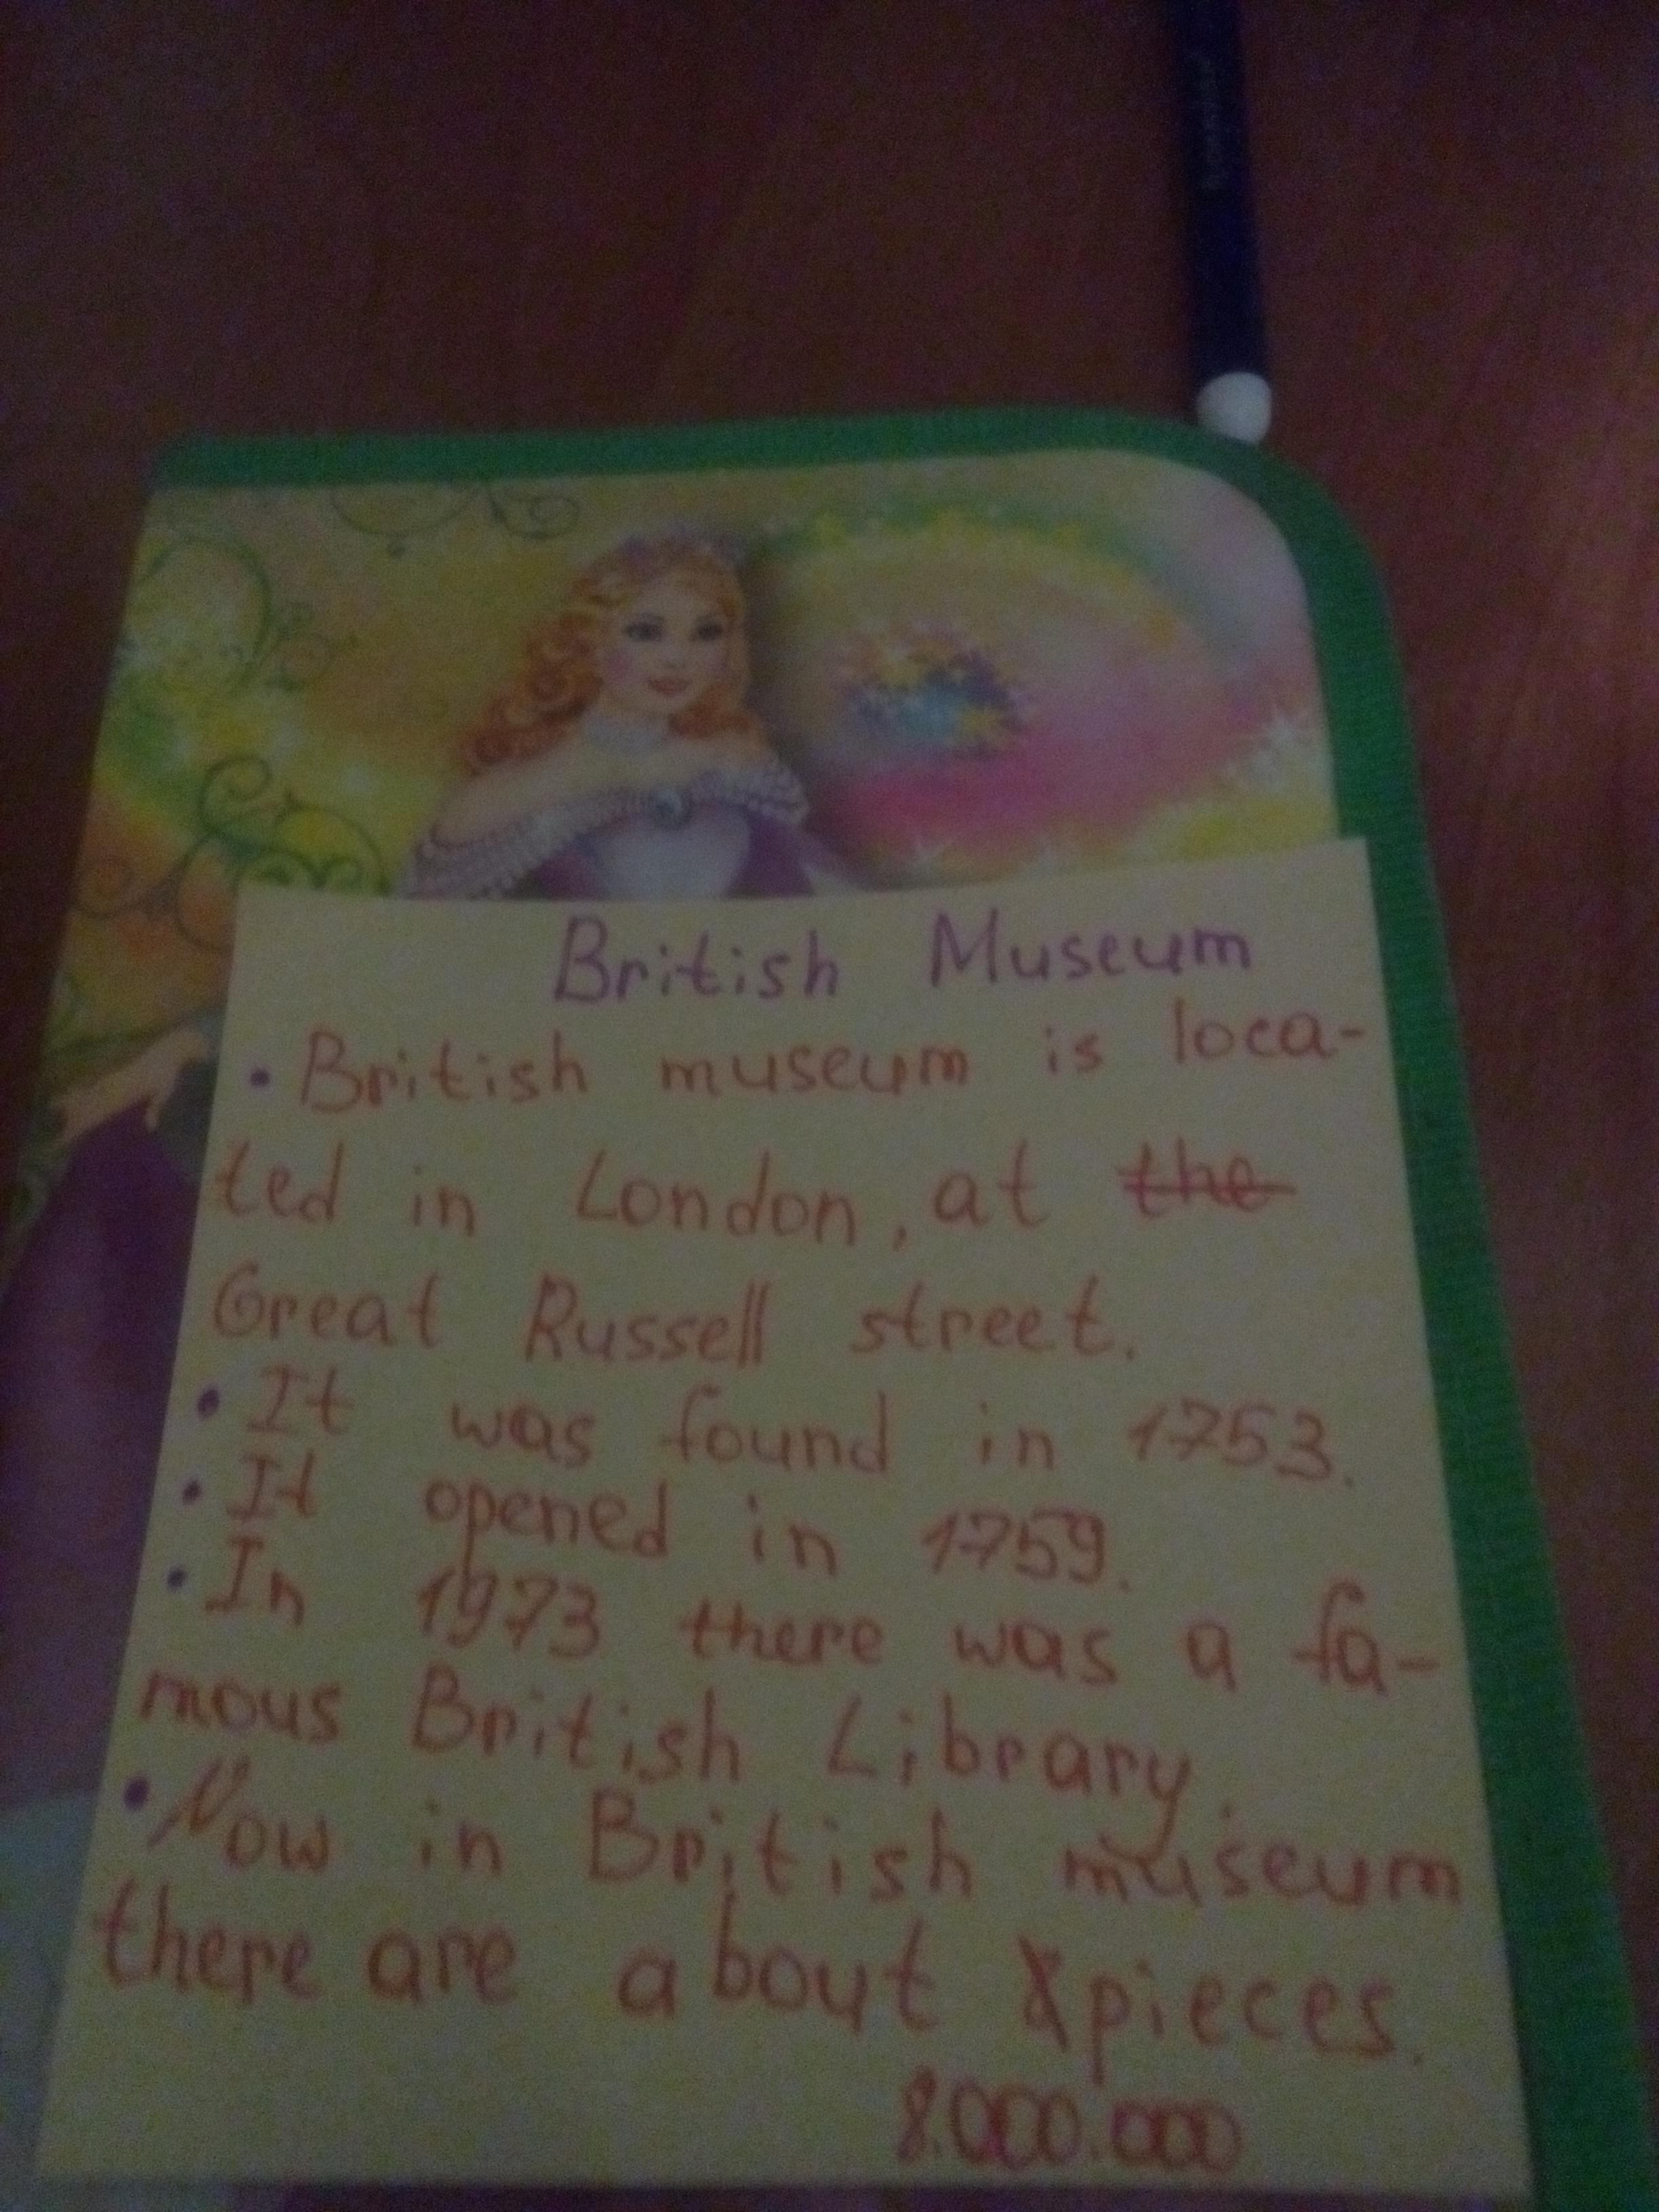 British Museum
• British museum is loca-
ted in London, at the
Great Russell street.
• It was found in 1753.
• It opened in 1759.
• In 1973 there was a fa-
mous British Library.
• Now in British museum
there are about pieces.
8.000.000